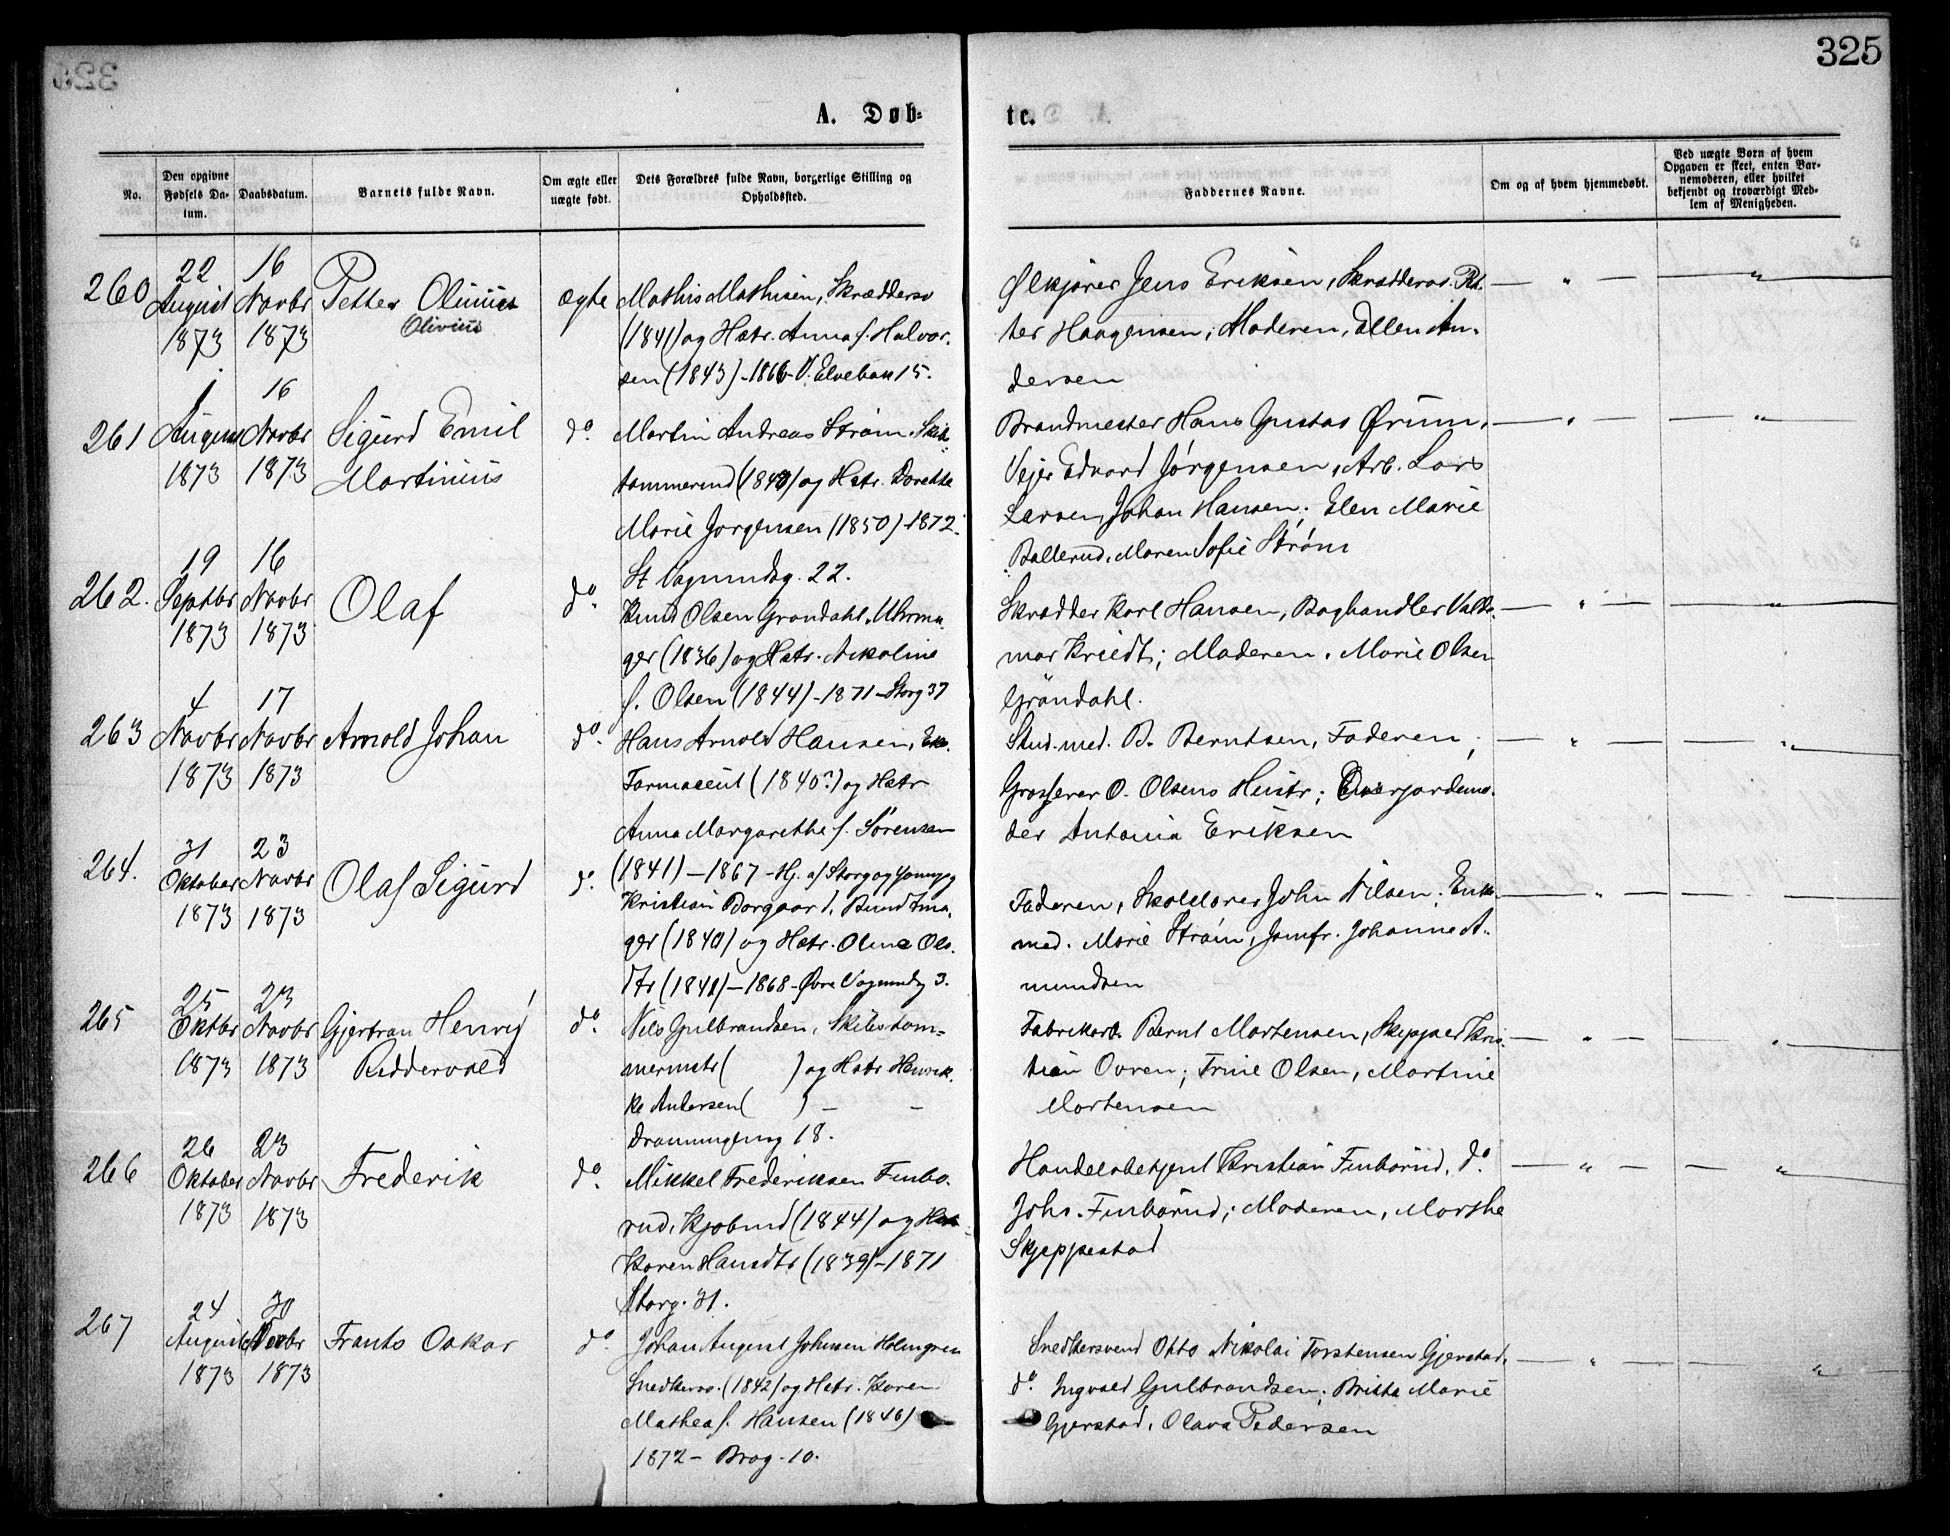 325
A. Døb-
te.
No.
Den opgivne Fødsels Da-tum.
Daabsdatum.
Barnets fulde Navn.
Om ægte eller uægte født.
Dets Forældres fulde Navn, borgerlige Stilling og Opholdssted.
Faddernes Navne.
Om og af hvem hjemmedøbt.
Ved uægte Børn af hvem Opgaven er skeet, enten Bar-nemoderen, eller hvilket bekjendt og troværdigt Med-lem af Menigheden.
260
22 August 1873
16 Novbr 1873
Petter Olinius
Olivius
ægte
Mathis Mathisen, Skræddersv
(1841) og Hstr. Anna f. Halvor-
sen (1843) - 1866 - V. Elvebak 15.
Ølkjører Jens Eriksen, Skræddersv. Pet-
ter Haagensen; Moderen, Ellen An-
dersen
261
1 August 1873
16 Novbr 1873
Sigurd Emil
Martinius
do.
Martin Andreas Strøm, Skibs-
tømmermd (1840) og Hstr. Dorethe
Marie Jorgensen (1850) - 1872.
22.
Brandmester Hans Gustav Ørum,
Vejer Edvard Jørgensen, Arb. Lars
Larsen, Johan Hansen; Elen Marie
Ballerud, Maren Sofie Strøm
262.
19 Septbr 1873
16 Novbr 1873
Olaf
do.
Knud Olsen Grøndahl, Uhrma-
ger (1836) og Hstr. Nikoline
f. Olsen (1844) - 1871 - Storg 37
Skrædder Karl Hansen, Boghandler Valde-
mar Kriedt; Moderen, Marie Olsen
Gröndahl.
263
4 Novbr 1873
17 Novbr 1873
Arnold Johan
do.
Hans Arnold Hansen, Ex.
Farmaceut (1840?) og Hstr
Anna Margarethe f. Sørensen
(1841) - 1867 - Hj. af Storg og
Stud. med. B. Berntsen, Faderen;
Grosserer O. Olsens Hustr; Overjordemo-
der Antonia Eriksen
264.
31 Oktober 1873
23 Novbr 1873
Olaf Sigurd
do.
Kristian Borgaard, Bundtma-
ger (1840) og Hstr. Oline Ols-
dtr (1841) - 1868 - Øvre 3.
Faderen, Skolelærer John Nilsen; Enke-
mad. Marie Strøm, Jomfr. Johanne A-
mundsen
265
25 Oktbr 1873
23 Novbr 1873
Gjertran Henrij
Riddervold
do.
Nils Gulbrandsen, Skibstøm-
mermstr ( ) og Hstr Henrik-
ke Andersen ( ) - -
18.
Fabrikarb. Bernt Mortensen, Skipper Kris-
tian Ovren; Trine Olsen, Martine
Mortensen
266
26 Oktober 1873
23 Novbr 1873
Frederik
do.
Mikkel Frederiksen Finbø-
rud, Kjøbmd (1844) og Hstr
Karen Hansdtr (1839) - 1871
Storg. 31.
Handelsbetjent Kristian Finbørud, do.
Johs. Finbørud; Moderen, Marthe
Skjeppestad
267
24 August 1873
30 Novbr 1873
Frants Oskar
do.
Johan August Johnsen Holmgren
Snedkersv. (1842) og Hstr. Karen
Mathea f. Hansen (1846)
1872 - Brog. 10.
Snedkersvend Otto Nikolai Torstensen Gjerstad,
do. Ingvald Gulbrandsen; Brista Marie
Gjerstad, Olava Pedersen